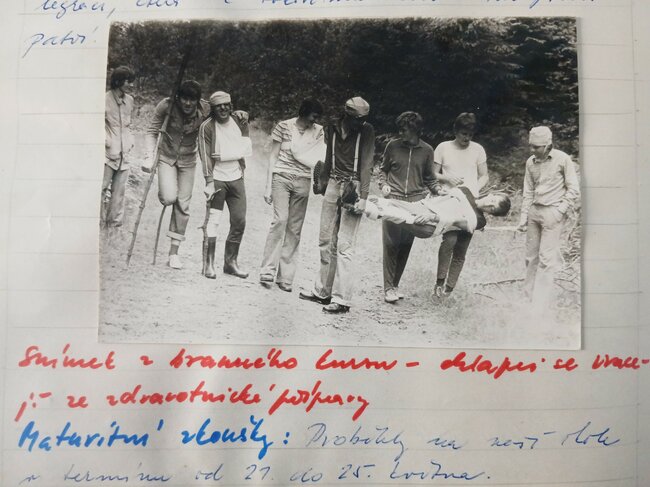 legrací, která k
patří!
Snímek z branného kursu – chlapci se vrace-
jí ze zdravotnické přípravy
Maturitní zkoušky: Proběhly na naší škole
v termínu od 21. do 25. května.